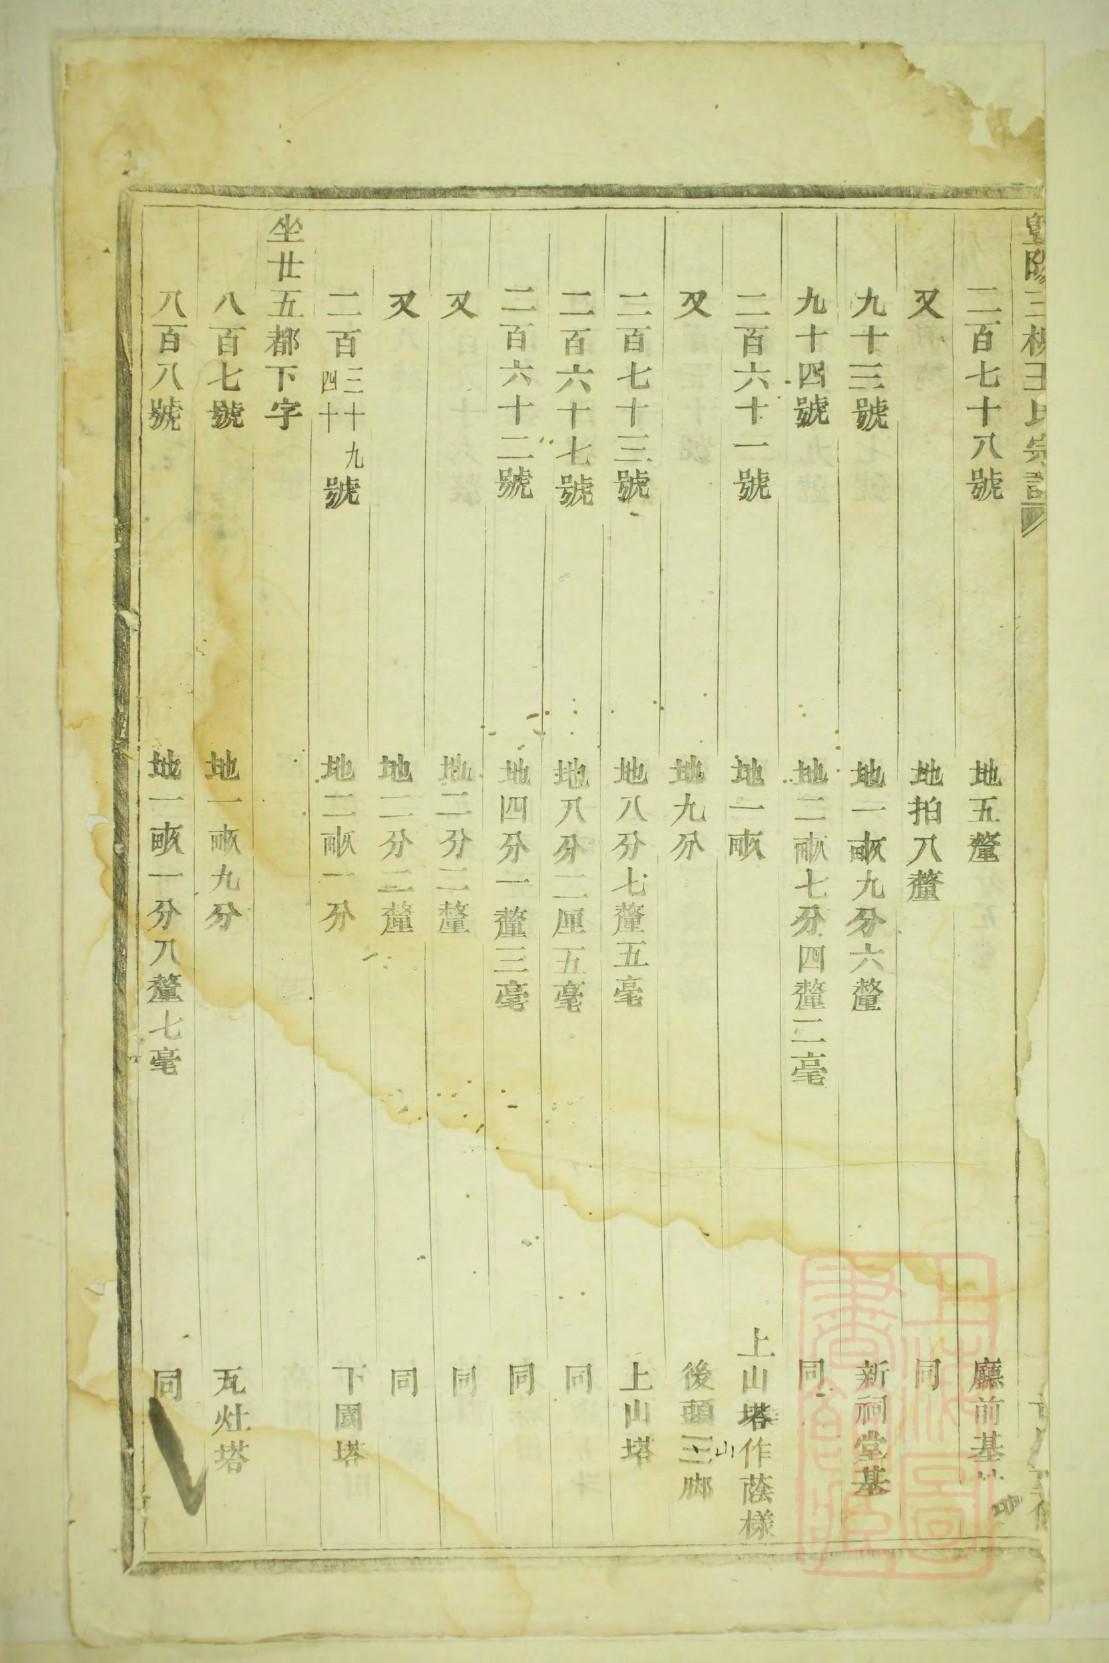 暨陽三桃王氏宗譜
二百七十八號 地五釐 廳前基地
又 地拍八釐 同
九十三號 地一畝九分六釐 新祠堂基
九十四號 地二畝七分四釐二毫 同
二百六十一號 地一畝 上山塔作蔭樣
又 地九分 後頭山脚
二百七十三號 地八分七釐五毫 上山塔
二百六十七號 地八分二厘五毫 同
二百六十二號 地四分一釐三毫 同
又 地二分二釐 同
又 地二分二釐 同
二百三十九四十號 地二畝一分 下園塔
坐廿五都下字
八百七號 地一畝九分 瓦灶塔
八百八號 地一畝一分八釐七毫 同